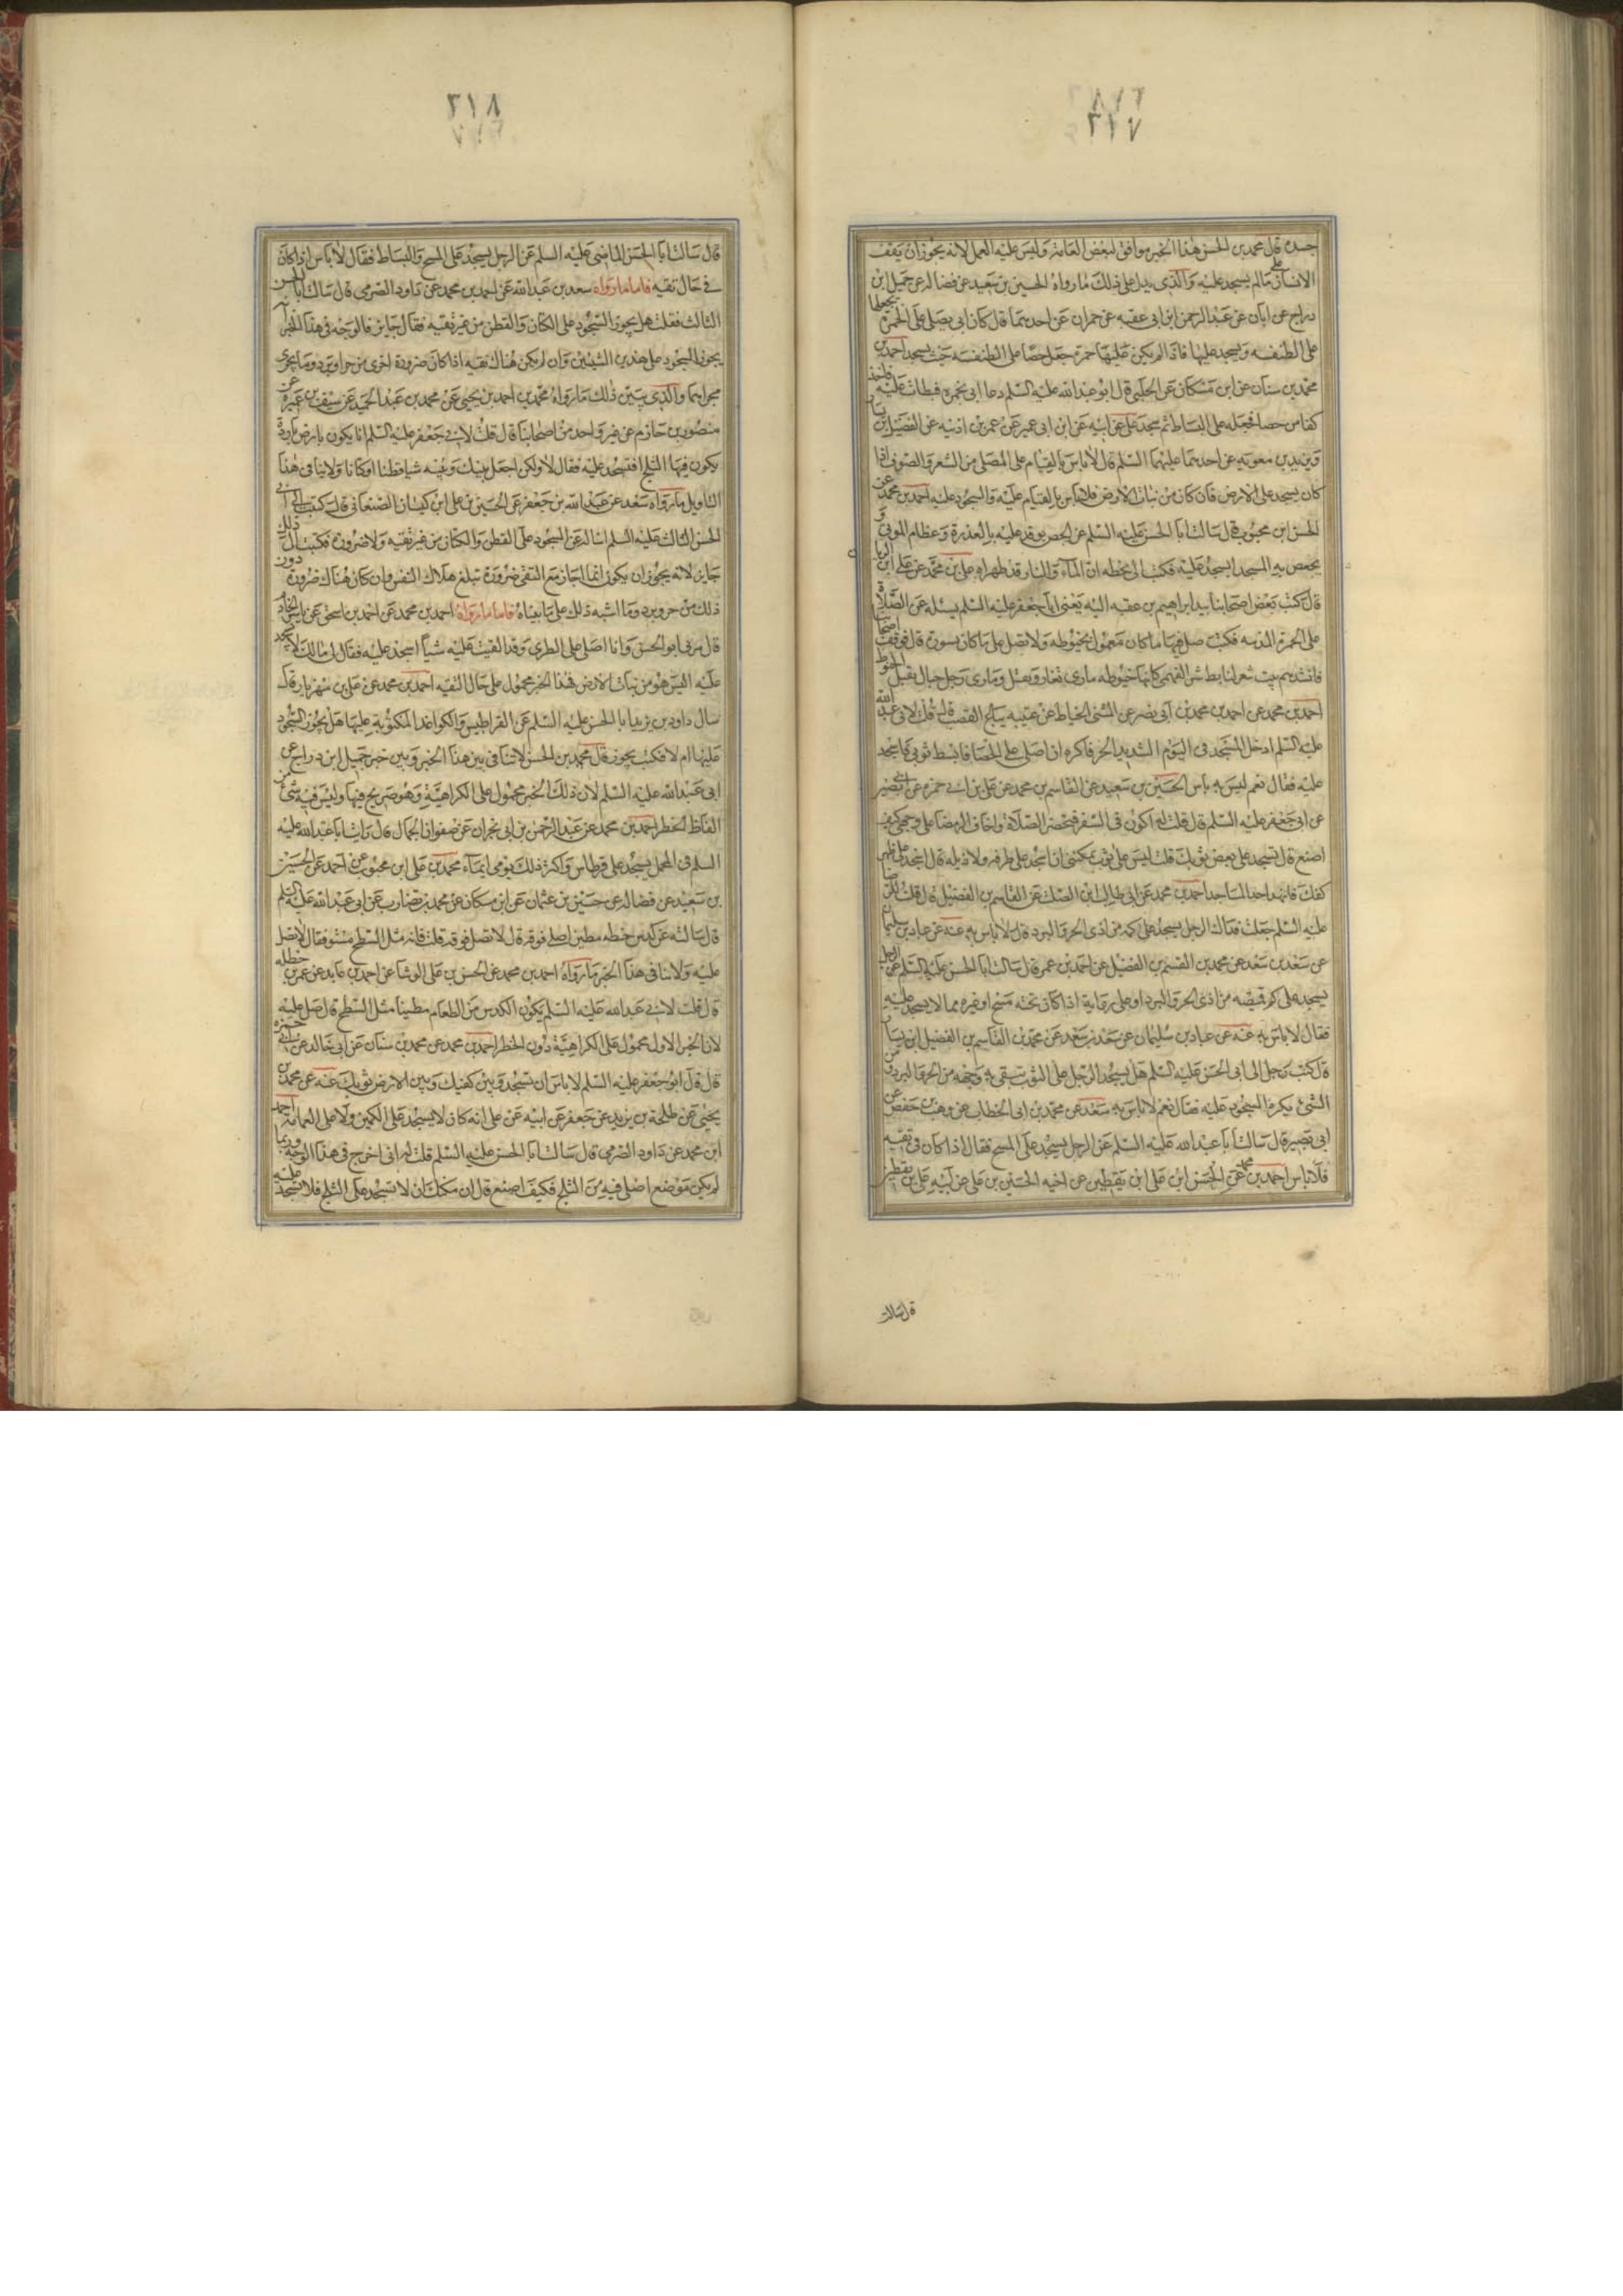 ٣١٧
جسده قال محمد بن الحسن هذا الخبر موافق لبعض العامة وليس عليه العمل لانه يجوز ان يقف
الانسان على مالم يسجد عليه والذى يدل على ذلك ما رواه الحسين بن سعيد عن فضاله عن جميل بن
دراج عن ابان عن عبد الرحمن ابن ابى عقبه عن حمران عن احدهما قال كان ابى يصلى على الخمره يجعلها
على الطنفسه ويسجد عليها فاذا لم يكن عليها خمرة جعل حصا على الطنفسه حيث يسجد احمد بن
محمد بن سنان عن ابن مسكان عن الحلبى قال ابو عبد الله عليه السلم دعا ابى بخمره فبطات عليه فاخذ
كفا من حصا فجعله على البساط ثم سجد على عن ابيه عن ابن ابى عمير عن عمر بن اذينه عن الفضيل بن يسار
وبريد بن معوية عن احدهما عليهما السلم قال لا باس بالقيام على المصلى من الشعر والصوف اذا
كان يسجد على الارض فان كان من نبات الارض فلا باس بالقيام عليه والسجود عليه احمد بن محمد عن
الحسن ابن محبوب قال سالت ابا الحسن عليه السلم عن الجص يوقد عليه بالعذرة وعظام الموتى و
يجصص به المسجد ايسجد عليه فكتب الى بخطه ان الماء والنار قد طهراه على بن محمد عن على ابن الريان
قال كتب بعض اصحابنا بيد ابراهيم بن عقبه اليه يعنى ابا جعفر عليه السلم يسئله عن الصلاة
على الخمرة المدنيه فكتب صل فيها ما كان معمولا بخيوطه ولا تصل على ما كان بسيورة قال فوقف اصحابنا
فانشدتهم بيت شعر لتابط شرا الفهمى كانها خيوطه مارى تغار وتفتل ومارى رجل حبال يفتل الخيوط
احمد بن محمد عن احمد بن محمد بن ابى نصر عن المثنى الخياط عن عتيبه بياع القصب قال قلت لابى عبد الله
عليه السلم ادخل المسجد فى اليوم الشديد الحر فاكره ان اصلى على الحصا فابسط ثوبى فاسجد
عليه فقال نعم ليس به باس الحسين بن سعيد عن القاسم بن محمد عن على بن ابى حمزه عن ابى بصير
عن ابى جعفر عليه السلم قال قلت له اكون فى السفر فتحضر الصلاة واخاف الرمضا على وجهى كيف
اصنع قال تسجد على بعض ثوبك قلت ليس على ثوب يمكننى ان اسجد على طرفه ولا ذيله قال اسجد على ظهر
كفك فانها احد المساجد احمد بن محمد عن ابى طالب ابن الصلت عن القاسم بن الفضيل قال قلت للرضا
عليه السلم جعلت فداك الرجل يسجد على كمه من اذى الحر والبرد قال لا باس به عنه عن عباد بن سليمان
عن سعد بن سعد عن محمد بن القسم بن الفضيل عن احمد بن عمر قال سالت ابا الحسن عليه السلم عن الرجل
يسجد على كم قميصه من اذى الحر والبرد او على ردايه اذا كان تحته مسح او غيره مما لا يسجد عليه
فقال لا باس به عنه عن عباد بن سليمان عن سعد بن سعد عن محمد بن القاسم بن الفضيل ابن يسار
قال كتب رجل الى ابى الحسن عليه السلم هل يسجد الرجل على الثوب يتقى به وجهه من الحر والبرد ومن
الشئ يكره السجود عليه فقال نعم لا باس به سعد عن محمد بن ابى الخطاب عن وهيب بن حفص عن
ابى بصير قال سالت ابا عبد الله عليه السلم عن الرجل يسجد على المسح فقال اذا كان فى تقيه
فلا باس احمد بن محمد عن الحسن ابن على ابن يقطين عن اخيه الحسين بن على عن ابيه على بن يقطين
قال سالت
٣١٨
قال سالت ابا الحسن الماضى عليه السلم عن الرجل يسجد على المسح والبساط فقال لا باس اذا كان
فى حال تقيه فاما ما رواه سعد بن عبد الله عن احمد بن محمد عن داود الصرمى قال سالت ابا الحسن
الثالث فقلت هل يجوز السجود على الكتان والقطن من غير تقيه فقال جايز فالوجه فى هذا الخبر انه
يجوز السجود على هذين الشيئين وان لم يكن هناك تقيه اذا كان ضرورة اخرى من حر او برد وما يجرى
مجراهما والذى يبين ذلك ما رواه محمد بن احمد بن يحيى عن محمد بن عبد الحميد عن سيف بن عميرة عن
منصور بن حازم عن غير واحد من اصحابنا قال قلت لابى جعفر عليه السلم انا نكون بارض باردة
يكون فيها الثلج افنسجد عليه فقال لا ولكن اجعل بينك وبينه شيا قطنا او كتانا ولا ينافى هذا
التاويل ما رواه سعد عن عبد الله بن جعفر عن الحسين بن على ابن كيسان الصنعانى قال كتبت الى ابى
الحسن الثالث عليه السلم اساله عن السجود على القطن والكتان من غير تقيه ولا ضرورة فكتب الى ذلك
جايز لانه يجوز ان يكون انما اجاز مع التقى ضرورة تبلغ هلاك النفس وان كان هناك ضرورة دون
ذلك من حر وبرد وما اشبه ذلك على ما بيناه فاما ما رواه احمد بن محمد عن احمد بن اسحق عن ياسر الخادم
قال مر بى ابو الحسن وانا اصلى على الطبرى وقد القيت عليه شيأ اسجد عليه فقال لى مالك لا تسجد
عليه اليس هو من نبات الارض فهذا الخبر محمول على حال التقيه احمد بن محمد عن على بن مهزيار قال
سال داود بن يزيد ابا الحسن عليه السلم عن القراطيس والكواغد المكتوبة عليها هل يجوز السجود
عليها ام لا فكتب يجوز قال محمد بن الحسن لا تنافى بين هذا الخبر وبين خبر جميل ابن دراج عن
ابى عبد الله عليه السلم لان ذلك الخبر محمول على الكراهية وهو صريح فيها وليس فيه شئ من
الفاظ الحظر احمد بن محمد عن عبد الرحمن بن ابى نجران عن صفوان الجمال قال رايت ابا عبد الله عليه
السلم فى المحمل يسجد على قرطاس واكثر ذلك يومى ايماء محمد بن على ابن محبوب عن احمد عن الحسين
بن سعيد عن فضاله عن حسين بن عثمان عن ابن مسكان عن محمد بن مضارب عن ابى عبد الله عليه السلم
قال سالته عن كدس حنطه مطين اصلى فوقه قال لا تصل فوقه قلت فانه مثل السطح مستو فقال لا تصل
عليه ولا ينافى هذا الخبر ما رواه احمد بن محمد عن الحسن بن على الوشا عن احمد بن عايذ عن عمر بن حنظله
قال قلت لابى عبد الله عليه السلم يكون الكدس من الطعام مطينا مثل السطح قال صل عليه
لان الخبر الاول محمول على الكراهية دون الحظر احمد بن محمد عن محمد بن سنان عن ابى خالد عن ابى حمزه
قال قال ابو جعفر عليه السلم لا باس ان تسجد وبين كفيك وبين الارض ثوبك عنه عن محمد بن
يحيى عن طلحة بن يزيد عن جعفر عن ابيه عن على انه كان لا يسجد على الكمين ولا على العمامة احمد
ابن محمد عن داود الصرمى قال سالت ابا الحسن عليه السلم قلت له انى اخرج فى هذا الوجه وربما
لم يكن موضع اصلى فيه من الثلج فكيف اصنع قال ان امكنك ان لا تسجد على الثلج فلا تسجد عليه